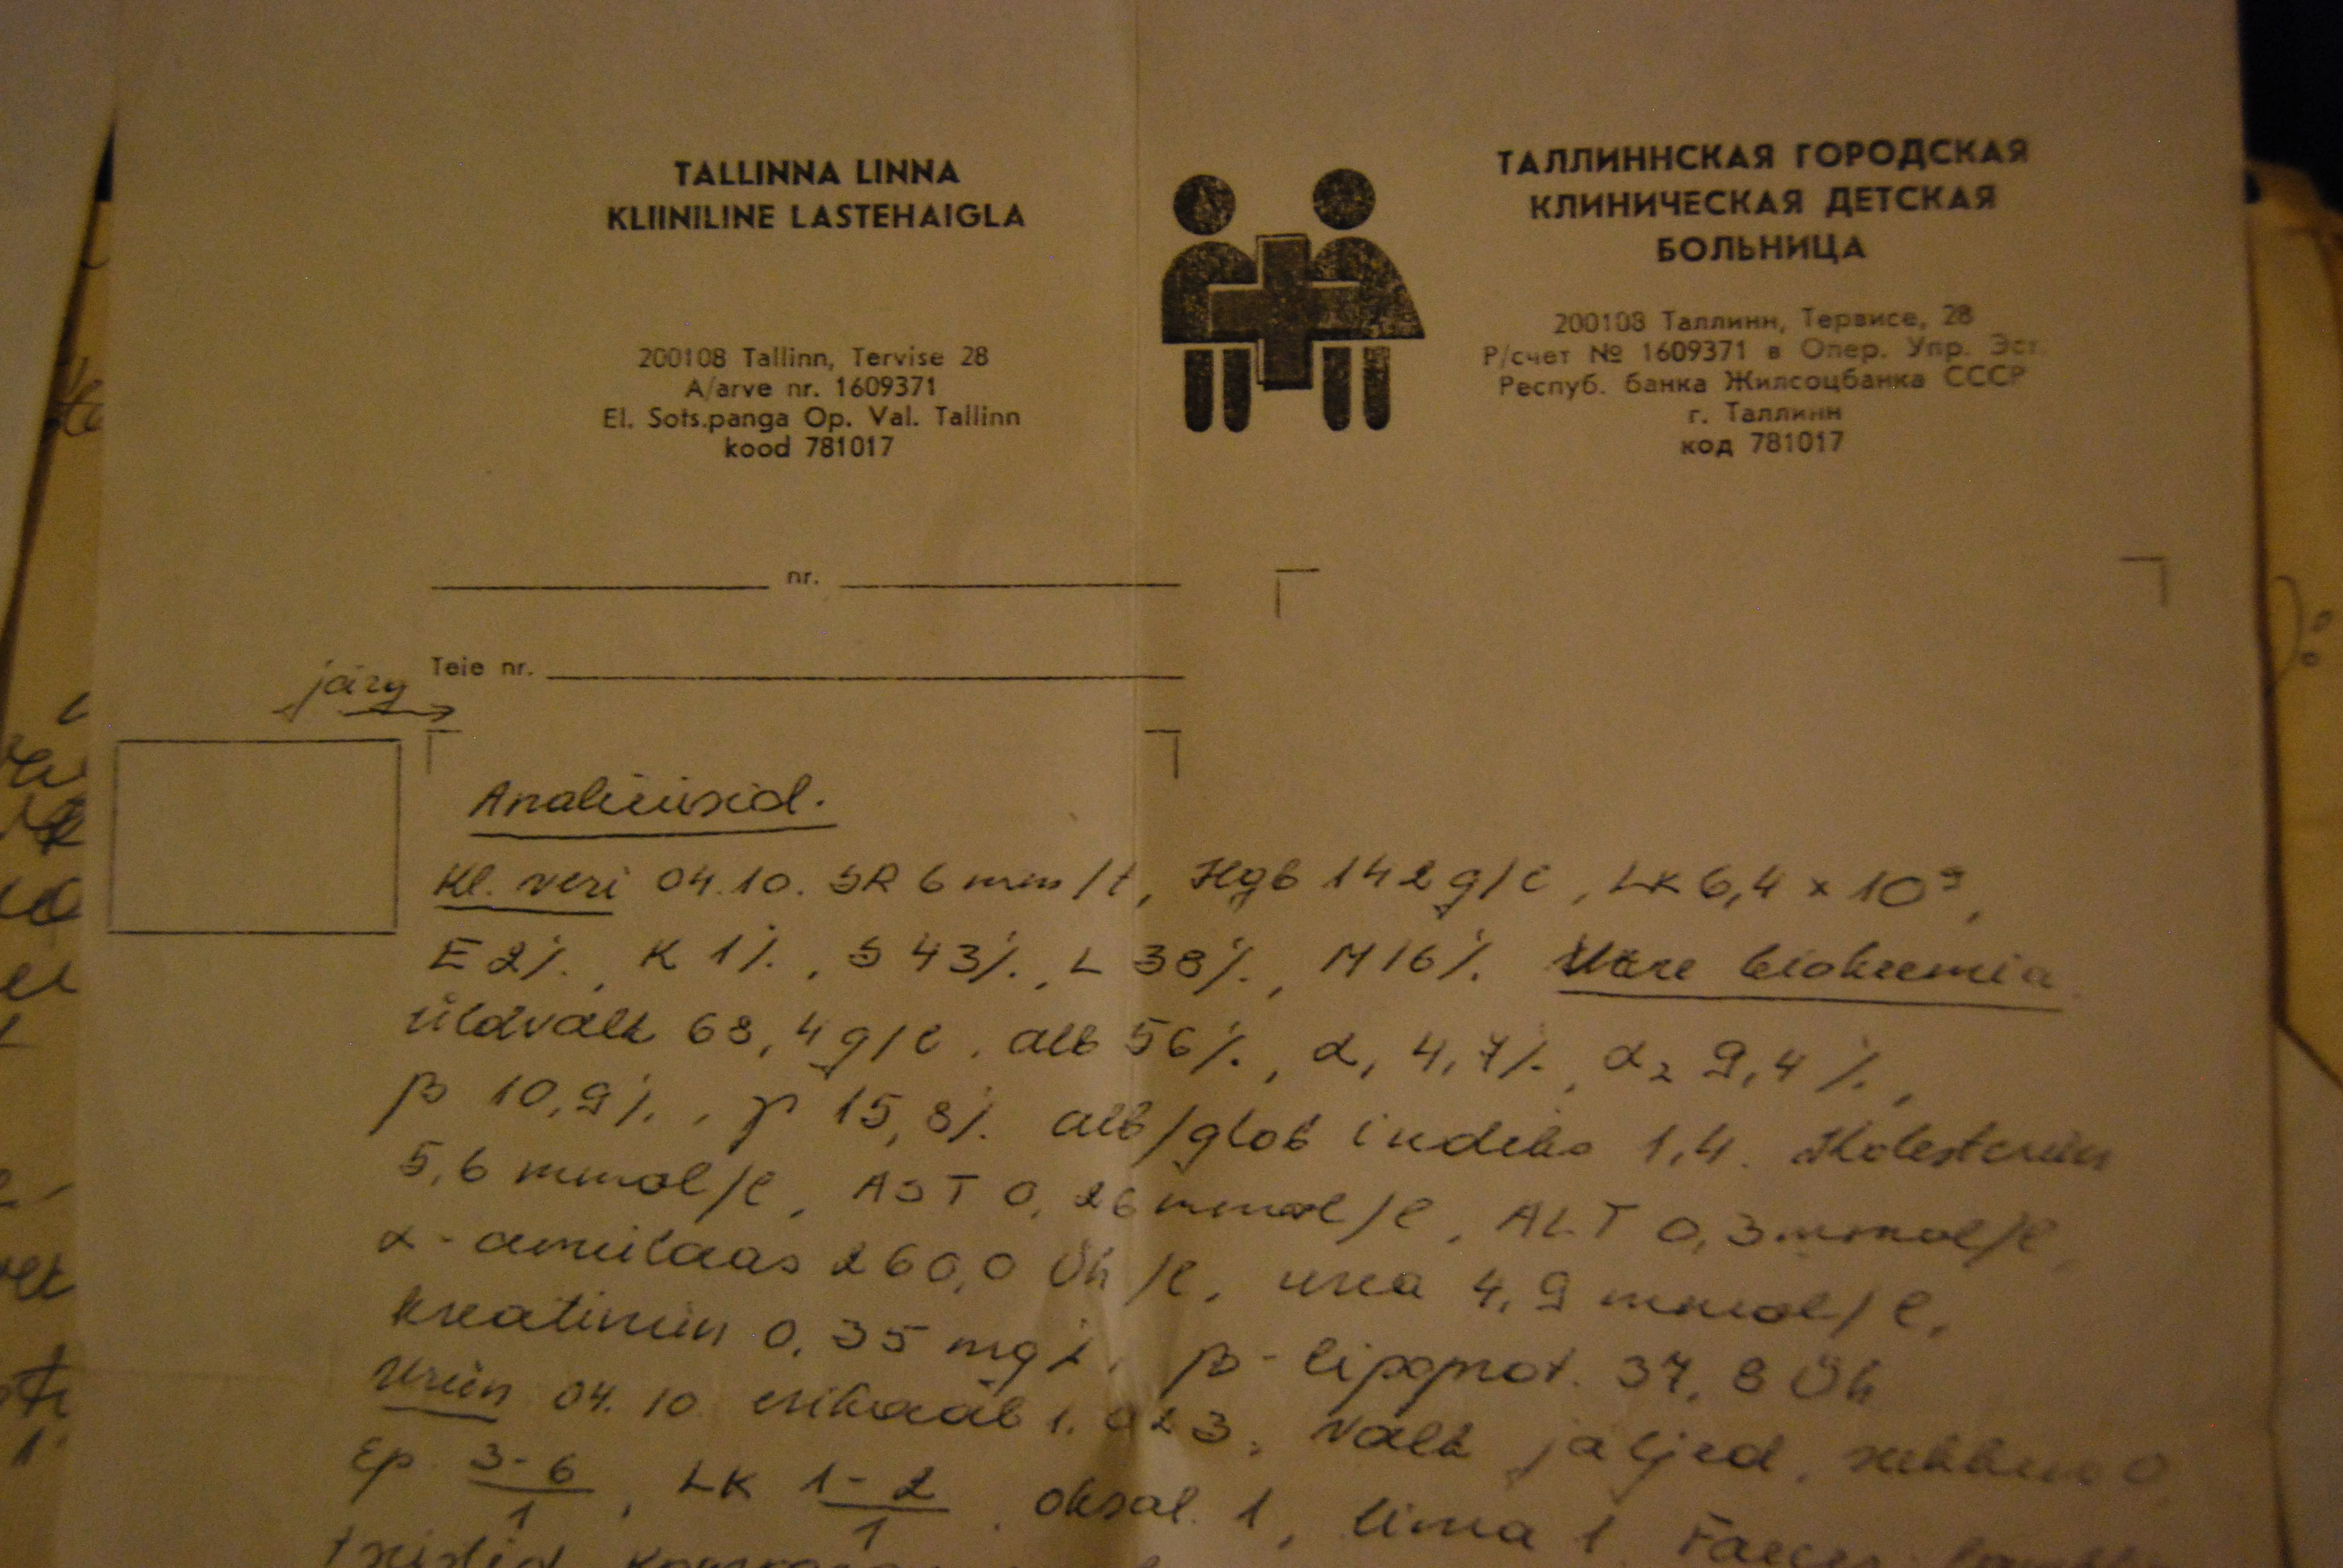 TALLINNA LINNA
KLIINILINE LASTEHAIGLA
200108 Tallinn, Tervise 28
A/arve nr. 1609371
El. Sots.panga Op. Val. Tallinn
kood 781017
ТАЛЛИННСКАЯ ГОРОДСКАЯ
КЛИНИЧЕСКАЯ ДЕТСКАЯ
БОЛЬНИЦА
200108 Таллинн, Тервисе, 28
Р/счет № 1609371 в Опер. Упр. Эст.
Респуб. банка Жилсоцбанка СССР
г. Таллинн
код 781017
nr.
Teie nr.
järg
Analüüsid.
Kl. veri 04.10. SR 6 mm/t, Hgb 142 g/l, LK 6,4 × 10⁹,
E 2%, K 1%, S 43%, L 38%, M 16%. Vere biokeemia
üldvalk 68,4 g/l, alb 56%, α₁ 4,7%, α₂ 9,4%,
β 10,9%, γ 15,8%. alb/glob indeks 1,4. Kolesteriin
5,6 mmol/l, AST 0,26 mmol/l, ALT 0,3 mmol/l,
α-amülaas 260,0 Üh/l, urea 4,9 mmol/l,
kreatiniin 0,35 mg%, β-lipoprot. 37,8 Üh
Uriin 04.10. erikaal 1.023, valk jäljed, suhkur 0
Ep. 3-6/1, LK 1-2/1, oksal. 1, lima 1. Faeces